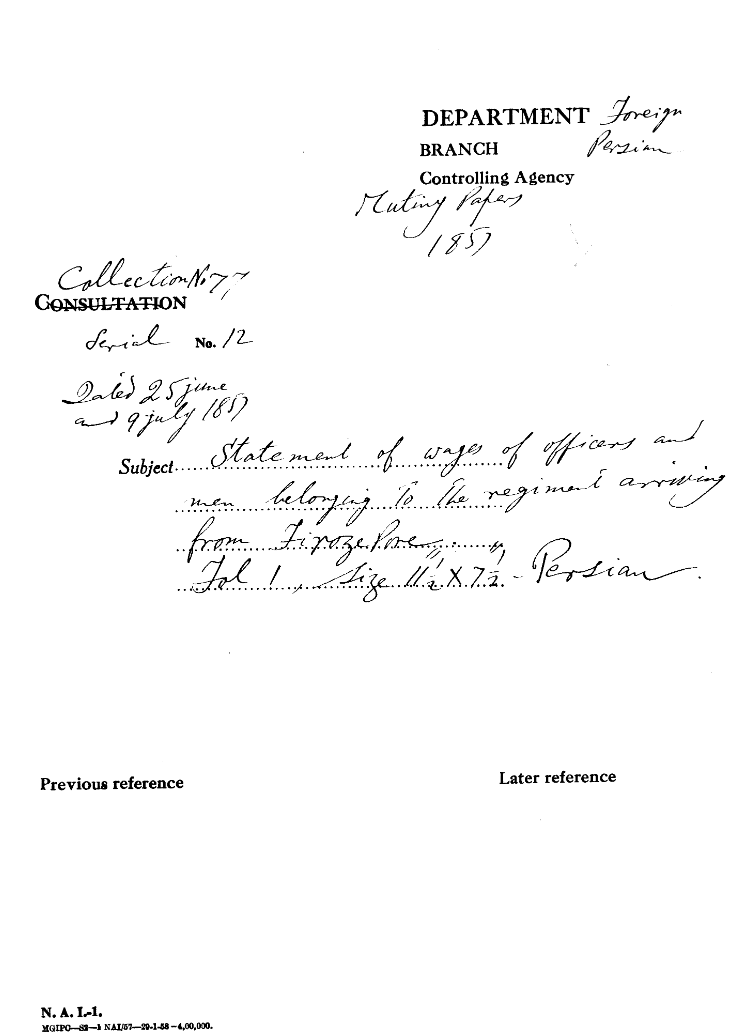 DEPARTMENT Foreign
BRANCH Persian
Controlling Agency
Mutiny Papers
1857
Collection No 77,
CONSULTATION
Serial No. 12
Dated 25 june
and 9 july 1857
Subject Statement of wages of officers and
men belonging to the regiment arriving
from FirozePore
Fol 1, Size 11½" X 7½" - Persian.
Previous reference
Later reference
N. A. I.-1.
MGIPC—S2—1 NAI/57—29-1-58—4,00,000.